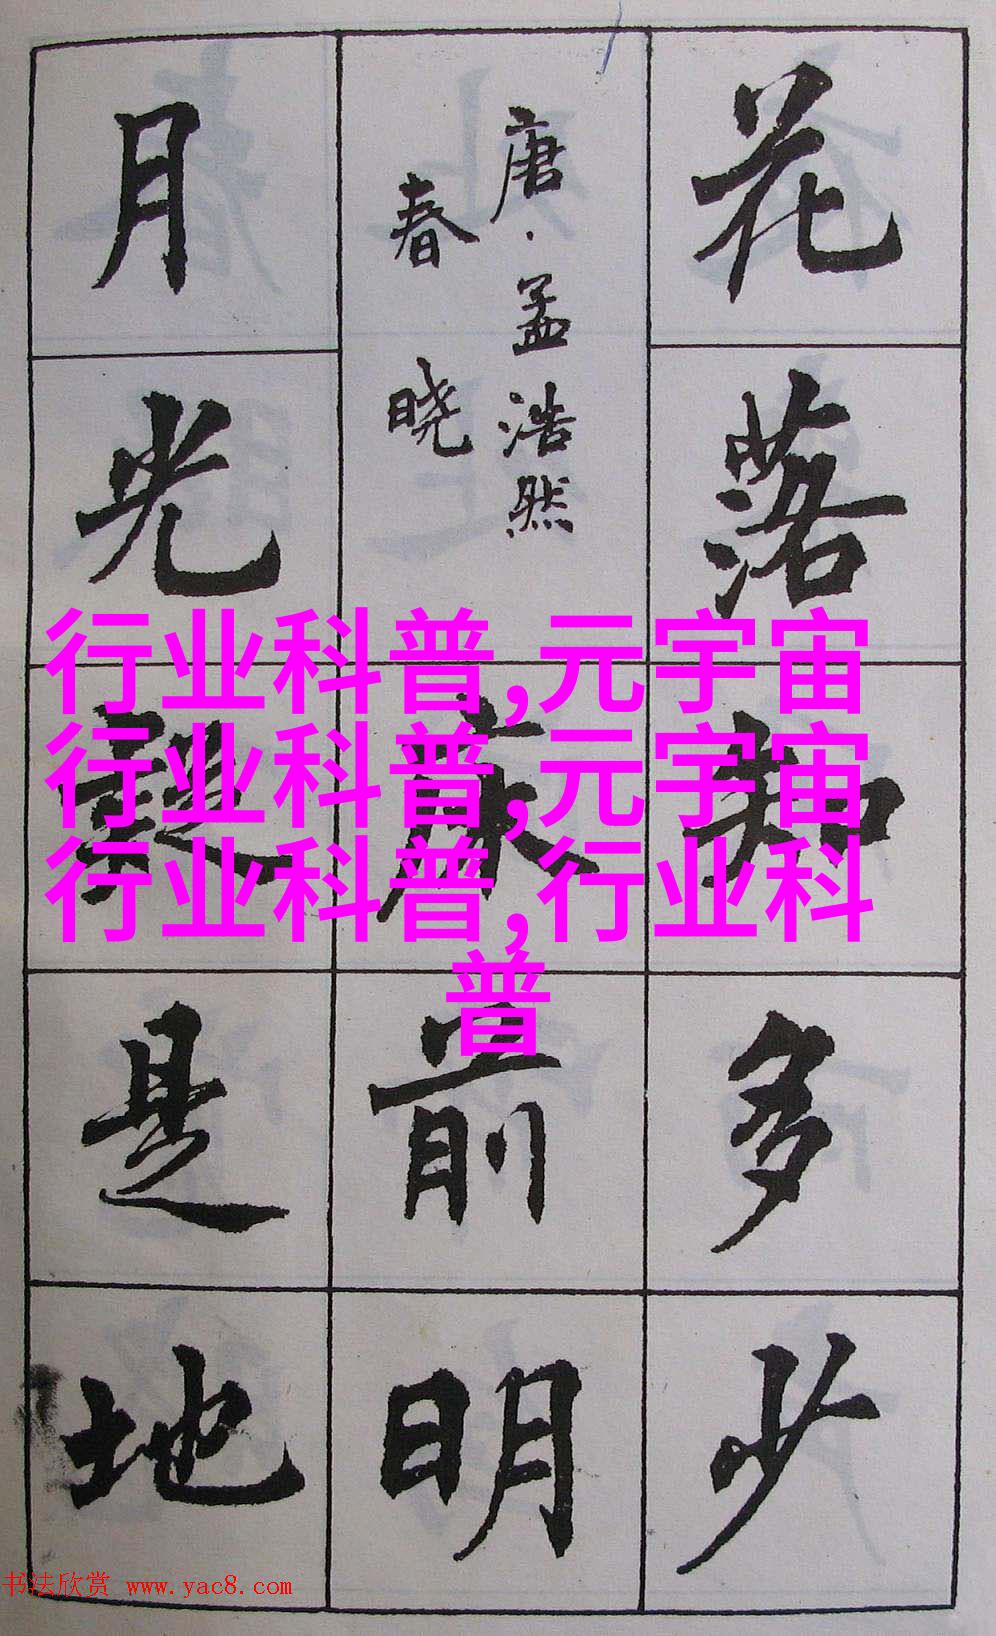 花落知多少
唐·孟浩然
春晓
床前明
月光疑是地
行业科普,元宇宙
行业科普,元宇宙
行业科普,行业科
普
书法欣赏 www.yac8.com